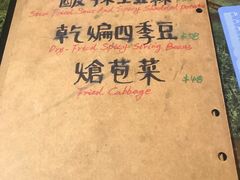 Stir Fried Sour And Spicy Shredded potato
乾煸四季豆 $58
Dry-Fried Spicy String Beans
熗苞菜 $48
Fried Cabbage